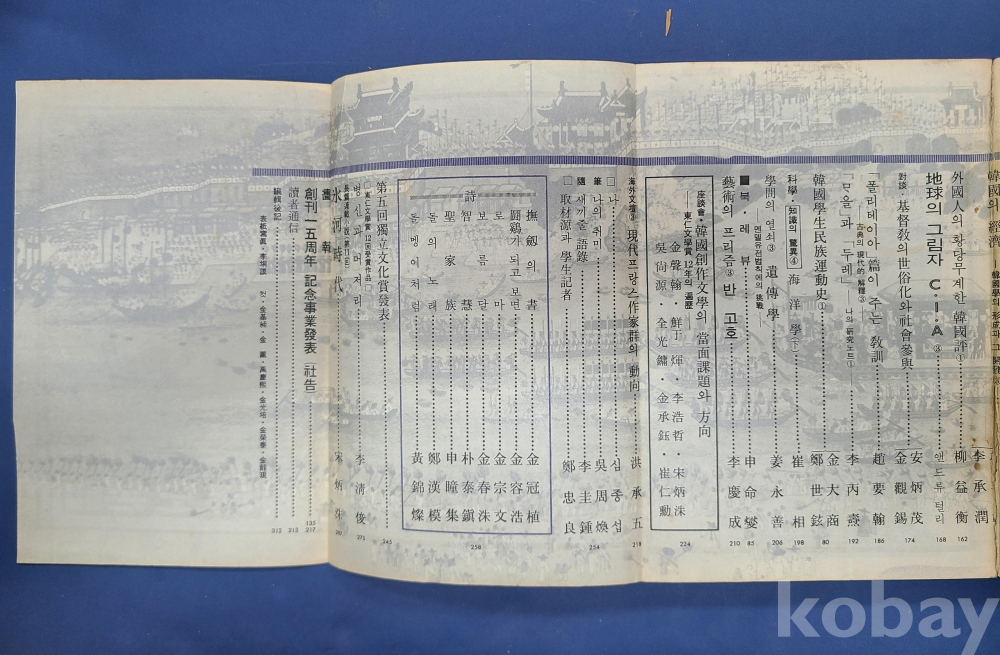 韓國의 經濟
李承潤
外國人의 황당무계한 韓國評① 柳益衡 162
地球의 그림자 C·I·A③ 앤드류 털리 168
對談·基督敎의 世俗化와 社會參與 安炳茂 金觀錫 174
「폴리테이아」篇이 주는 敎訓 趙要翰 186
―古典의 現代的 解釋③―
「므을」과 「두레」 ―나의 硏究노트①― 李丙燾 192
韓國學生民族運動史① 金大商 鄭世鉉 80
科學·知識의 驚異④ 海洋學(下) 崔相 198
學問의 열쇠③ 遺傳學 姜永善 206
―멘델유전법칙에의 挑戰―
■북·레뷰 申命燮 85
藝術의 프리즘③ 반 고호 李慶成 210
座談會·韓國創作文學의 當面課題와 方向 224
―東仁文學賞 12年의 遍歷―
金聲翰·鮮于煇·李浩哲·宋炳洙
吳尙源·全光鏞·金承鈺·崔仁勳
海外文壇③ 現代프랑스作家群의 動向 洪承五 218
隨筆 254
□나 심종섭
□나의 취미 吳周煥
□새끼줄 語錄 李圭鍾
□取材源과 學生記者 鄭忠良
詩 258
撫劍의 書 金冠植
鬪鷄가 되고 보면 金容浩
로마 金宗文
보름달 金春洙
智慧 朴泰鎭
聖家族 申瞳集
돌의 노래 鄭漢模
돌멩이처럼 黃錦燦
第五回 獨立文化賞發表 245
□東仁文學賞 12回 受賞作品□
병신과 머저리 李淸俊 273
長篇連載小說(第11回)
氷河時代 宋炳洙 297
畫報
創刊一五周年 記念事業發表 社告 135 217
讀者通信 313
編輯後記 312
kobay